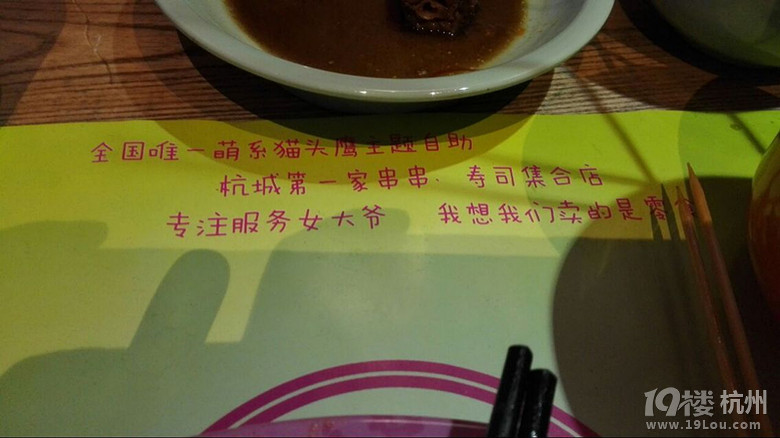 全国唯一萌系猫头鹰主题自助
杭城第一家串串·寿司集合店
专注服务女大爷 我想我们卖的是零食
19楼 杭州
www.19Lou.com